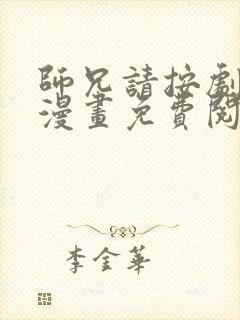 師兄請按劇
漫畫免費閱
李金華